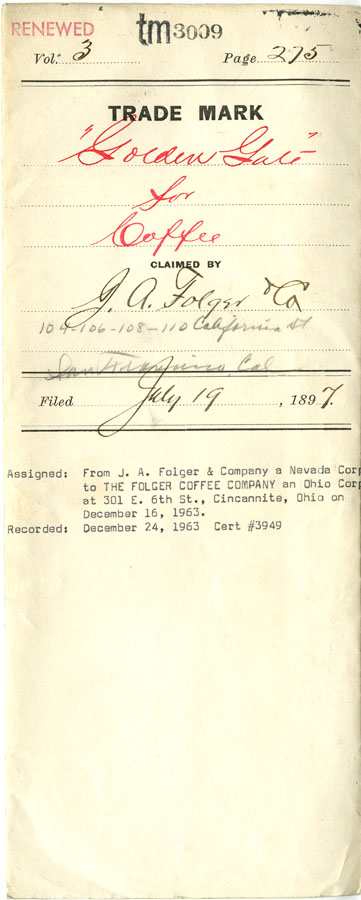 RENEWED
tm3009
Vol. 3 Page 275
TRADE MARK
"Golden Gate"
for
Coffee
CLAIMED BY
J. A. Folger & Co
104-106-108-110 California St
San Francisco, Cal
Filed July 19, 1897.
Assigned: From J. A. Folger & Company a Nevada Corp
to THE FOLGER COFFEE COMPANY an Ohio Corp
at 301 E. 6th St., Cincannite, Ohio on
December 16, 1963.
Recorded: December 24, 1963 Cert #3949